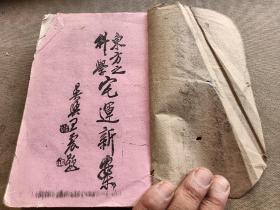 東方之
科學宅運新案
吳興王震題